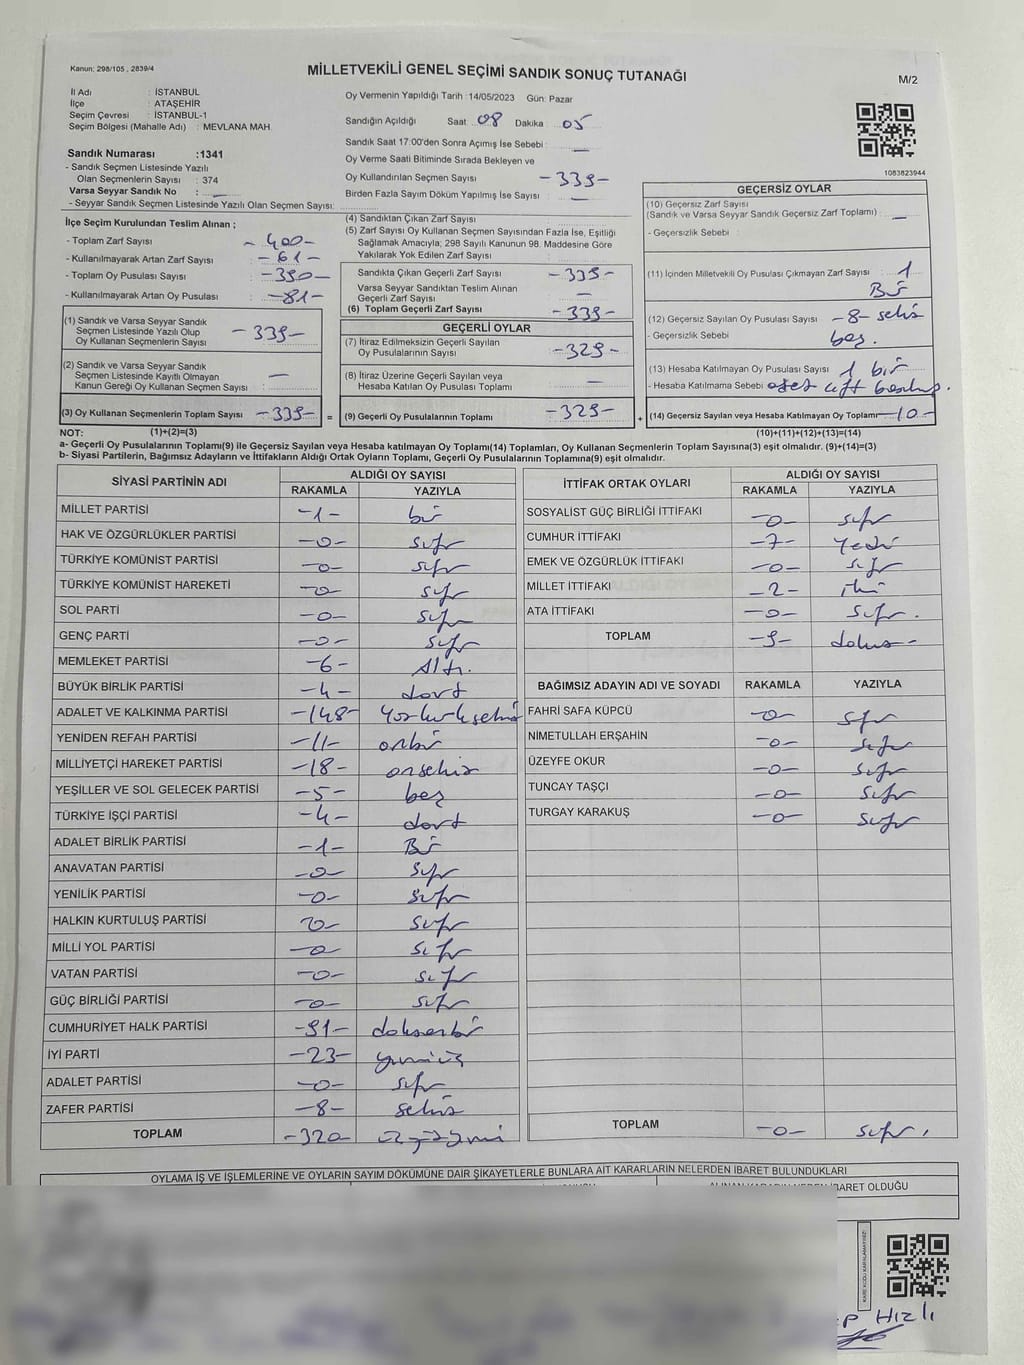 Kanun: 298/105 , 2839/4
MİLLETVEKİLİ GENEL SEÇİMİ SANDIK SONUÇ TUTANAĞI
M/2
İl Adı : İSTANBUL
İlçe : ATAŞEHİR
Seçim Çevresi : İSTANBUL-1
Seçim Bölgesi (Mahalle Adı) : MEVLANA MAH.
Sandık Numarası :1341
- Sandık Seçmen Listesinde Yazılı
Olan Seçmenlerin Sayısı : 374
Varsa Seyyar Sandık No : —
- Seyyar Sandık Seçmen Listesinde Yazılı Olan Seçmen Sayısı:
Oy Vermenin Yapıldığı Tarih :14/05/2023 Gün: Pazar
Sandığın Açıldığı Saat 08 Dakika 05
Sandık Saat 17:00'den Sonra Açımış İse Sebebi : —
Oy Verme Saati Bitiminde Sırada Bekleyen ve
Oy Kullandırılan Seçmen Sayısı -339-
Birden Fazla Sayım Döküm Yapılmış İse Sayısı : —
1083823944
İlçe Seçim Kurulundan Teslim Alınan ;
- Toplam Zarf Sayısı - 400-
- Kullanılmayarak Artan Zarf Sayısı -61-
- Toplam Oy Pusulası Sayısı -390-
- Kullanılmayarak Artan Oy Pusulası -81-
(1) Sandık ve Varsa Seyyar Sandık
Seçmen Listesinde Yazılı Olup
Oy Kullanan Seçmenlerin Sayısı -339-
(2) Sandık ve Varsa Seyyar Sandık
Seçmen Listesinde Kayıtlı Olmayan
Kanun Gereği Oy Kullanan Seçmen Sayısı : —
(3) Oy Kullanan Seçmenlerin Toplam Sayısı -339- =
(4) Sandıktan Çıkan Zarf Sayısı :
(5) Zarf Sayısı Oy Kullanan Seçmen Sayısından Fazla İse, Eşitliği
Sağlamak Amacıyla; 298 Sayılı Kanunun 98. Maddesine Göre
Yakılarak Yok Edilen Zarf Sayısı :
Sandıkta Çıkan Geçerli Zarf Sayısı -339-
Varsa Seyyar Sandıktan Teslim Alınan
Geçerli Zarf Sayısı —
(6) Toplam Geçerli Zarf Sayısı -339-
GEÇERLİ OYLAR
(7) İtiraz Edilmeksizin Geçerli Sayılan
Oy Pusulalarının Sayısı -329-
(8) İtiraz Üzerine Geçerli Sayılan veya
Hesaba Katılan Oy Pusulası Toplamı —
(9) Geçerli Oy Pusulalarının Toplamı -329- +
GEÇERSİZ OYLAR
(10) Geçersiz Zarf Sayısı
(Sandık ve Varsa Seyyar Sandık Geçersiz Zarf Toplamı) —
- Geçersizlik Sebebi :
(11) İçinden Milletvekili Oy Pusulası Çıkmayan Zarf Sayısı 1
Bir
(12) Geçersiz Sayılan Oy Pusulası Sayısı -8- sekiz
- Geçersizlik Sebebi boş.
(13) Hesaba Katılmayan Oy Pusulası Sayısı 1 bir
- Hesaba Katılmama Sebebi çift
(14) Geçersiz Sayılan veya Hesaba Katılmayan Oy Toplamı -10-
NOT: (1)+(2)=(3)
(10)+(11)+(12)+(13)=(14)
a- Geçerli Oy Pusulalarının Toplamı(9) ile Geçersiz Sayılan veya Hesaba katılmayan Oy Toplamı(14) Toplamları, Oy Kullanan Seçmenlerin Toplam Sayısına(3) eşit olmalıdır. (9)+(14)=(3)
b- Siyasi Partilerin, Bağımsız Adayların ve İttifakların Aldığı Ortak Oyların Toplamı, Geçerli Oy Pusulalarının Toplamına(9) eşit olmalıdır.
SİYASİ PARTİNİN ADI ALDIĞI OY SAYISI
RAKAMLA YAZIYLA
MİLLET PARTİSİ -1- bir
HAK VE ÖZGÜRLÜKLER PARTİSİ -0- sıfır
TÜRKİYE KOMÜNİST PARTİSİ -0- sıfır
TÜRKİYE KOMÜNİST HAREKETİ -0- sıfır
SOL PARTİ -0- sıfır
GENÇ PARTİ -0- sıfır
MEMLEKET PARTİSİ -6- Altı.
BÜYÜK BİRLİK PARTİSİ -4- dört
ADALET VE KALKINMA PARTİSİ -148- yüzkırksekiz
YENİDEN REFAH PARTİSİ -11- onbir
MİLLİYETÇİ HAREKET PARTİSİ -18- onsekiz
YEŞİLLER VE SOL GELECEK PARTİSİ -5- beş
TÜRKİYE İŞÇİ PARTİSİ -4- dört
ADALET BİRLİK PARTİSİ -1- Bir
ANAVATAN PARTİSİ -0- sıfır
YENİLİK PARTİSİ -0- sıfır
HALKIN KURTULUŞ PARTİSİ 0- sıfır
MİLLİ YOL PARTİSİ -0- sıfır
VATAN PARTİSİ -0- sıfır
GÜÇ BİRLİĞİ PARTİSİ -0- sıfır
CUMHURİYET HALK PARTİSİ -91- doksanbir
İYİ PARTİ -23- yirmiüç
ADALET PARTİSİ -0- sıfır
ZAFER PARTİSİ -8- sekiz
TOPLAM -320- üçyüzyirmi
İTTİFAK ORTAK OYLARI ALDIĞI OY SAYISI
RAKAMLA YAZIYLA
SOSYALİST GÜÇ BİRLİĞİ İTTİFAKI -0- sıfır
CUMHUR İTTİFAKI -7- Yedi
EMEK VE ÖZGÜRLÜK İTTİFAKI -0- sıfır
MİLLET İTTİFAKI -2- iki
ATA İTTİFAKI -0- sıfır.
TOPLAM -9- dokuz-
BAĞIMSIZ ADAYIN ADI VE SOYADI RAKAMLA YAZIYLA
FAHRİ SAFA KÜPCÜ -0- sıfır
NİMETULLAH ERŞAHİN -0- sıfır
ÜZEYFE OKUR -0- sıfır
TUNCAY TAŞÇI -0- sıfır
TURGAY KARAKUŞ -0- sıfır
TOPLAM -0- sıfır.
OYLAMA İŞ VE İŞLEMLERİNE VE OYLARIN SAYIM DÖKÜMÜNE DAİR ŞİKAYETLERLE BUNLARA AİT KARARLARIN NELERDEN İBARET BULUNDUKLARI
İBARET OLDUĞU
KARE KODU KARALAMAYINIZ!
HIZLI